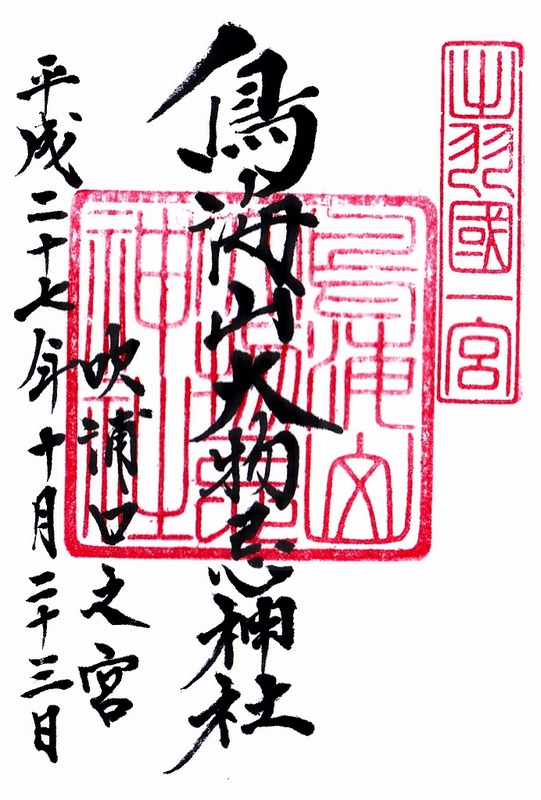 出羽國一宮
鳥海山大物忌神社
鳥海山大物忌神社
吹浦口之宮
平成二十七年十月二十三日